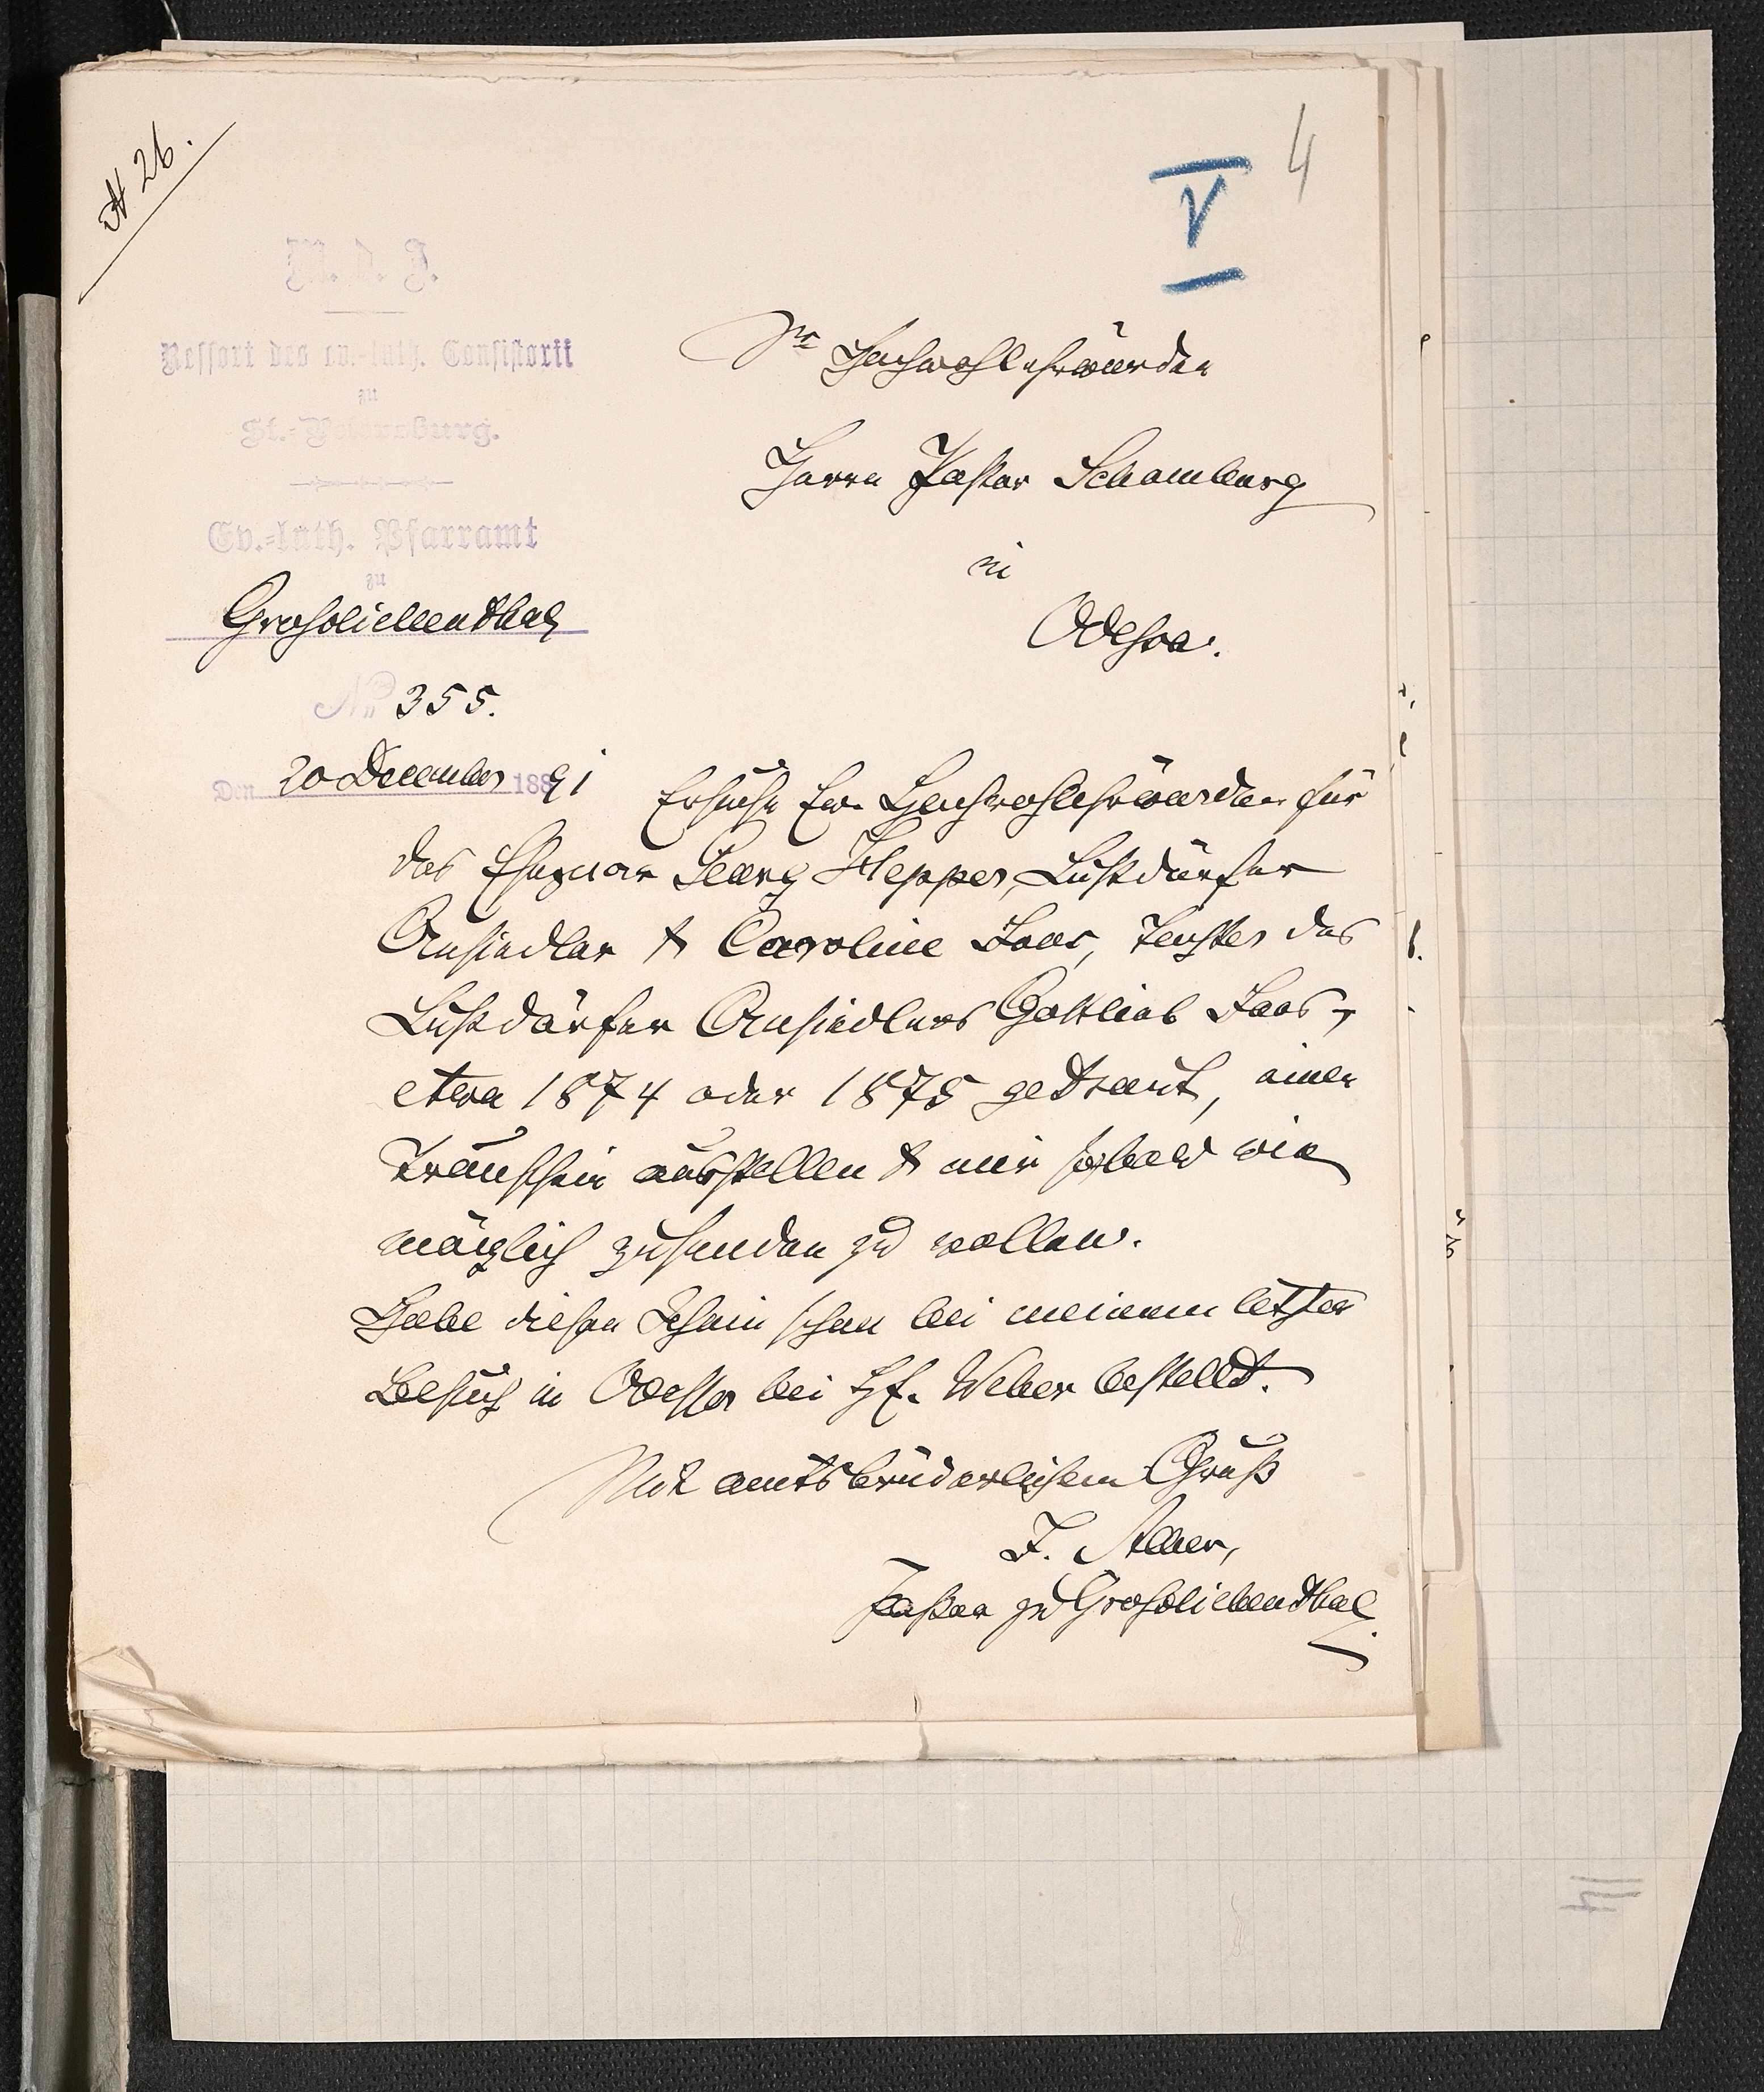 № 26.
4
V
M. d. J.
Ressort des ev.-luth. Consistorii
zu
St.-Petersburg.
Ev.-luth. Pfarramt
zu
Grosliebenthal
№ 355.
Den 20 December 188 91
Sr Hochwohlehrwürden
Herrn Pastor Schomburg
in
Odessa.
Ersuche Ew. Hochwohlehrwürden für
das Ehepaar Georg Hepper, Lustdörfer
Ansiedler & Caroline Laas, Tochter des
Lustdörfer Ansiedlers Gottlieb Laas,
etwa 1874 oder 1875 getraut, einen
Trauschein ausstellen & mir sobald wie
möglich zusenden zu wollen.
Habe diesen Schein schon bei meinem letzten
Besuch in Odessa bei H. Weber bestellt.
Mit amtsbrüderlichem Gruß
J. Alber,
Pastor zu Grosliebenthal.